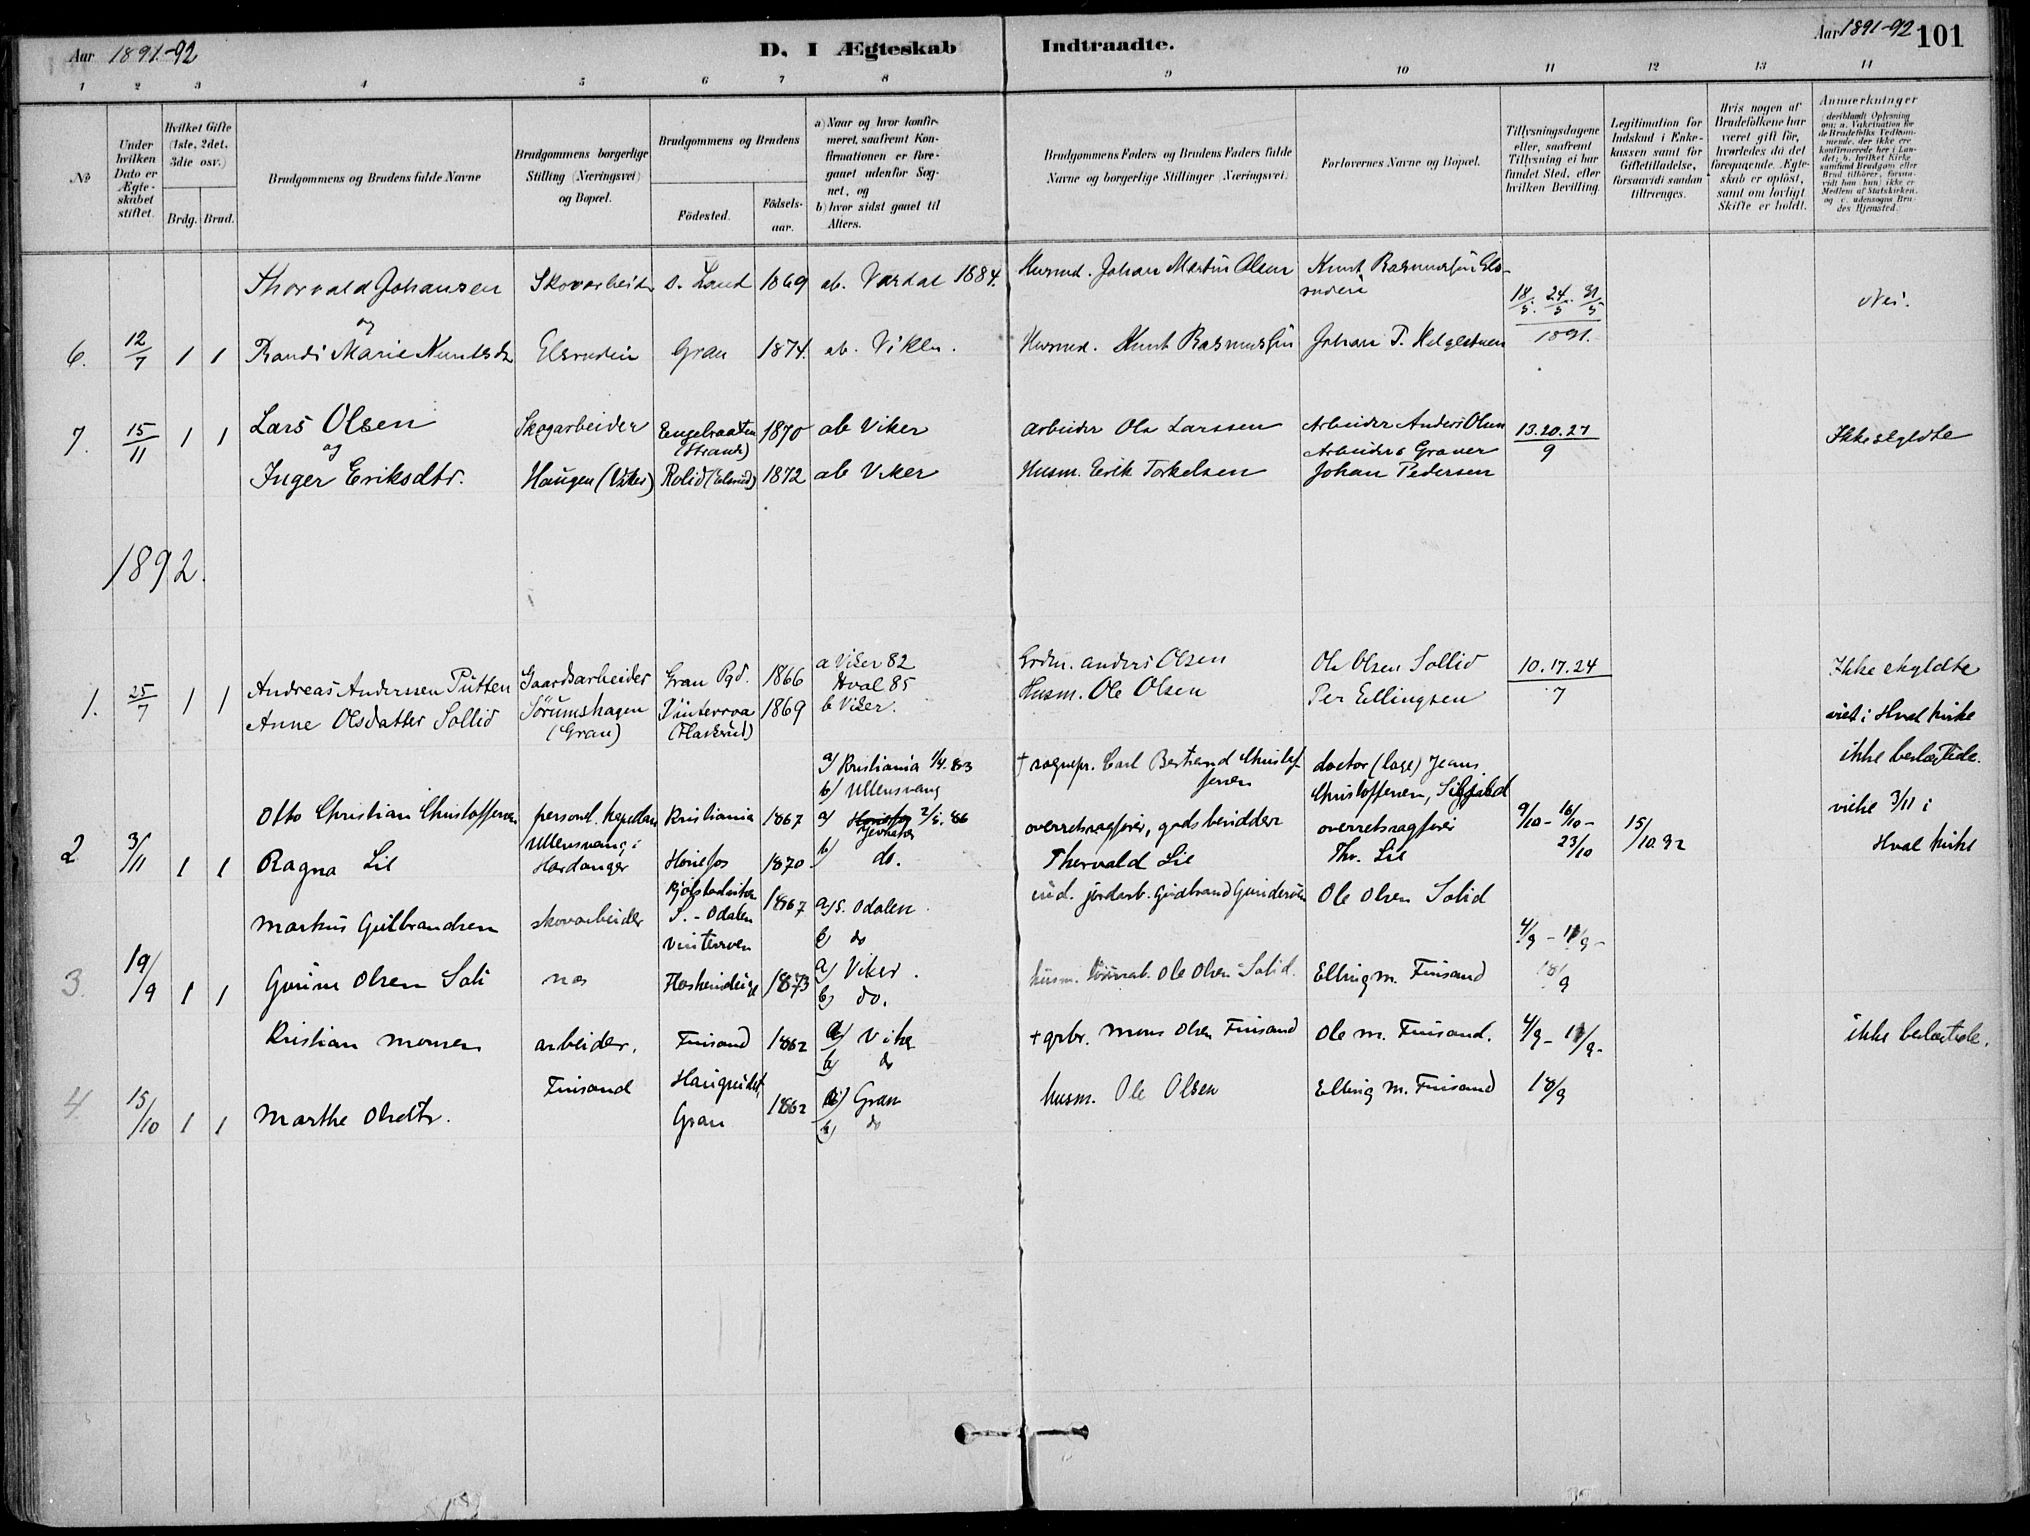 Aar 1891-92
D. I Ægteskab Indtraadte.
Aar 1891-92 101
1 2 3 4 5 6 7 8 9 10 11 12 13 14
No
Under hvilken Dato er Ægteskabet stiftet.
Hvilket Gifte (1ste, 2det, 3die osv.)
Brdg. Brud.
Brudgommens og Brudens fulde Navne
Brudgommens borgerlige Stilling (Næringsvei) og Bopæl.
Brudgommens og Brudens
Födested.
Födselsaar.
a) Naar og hvor konfirmeret, saafremt Konfirmationen er foregaaet udenfor Sognet, og
b) hvor sidst gaaet til Alters.
Brudgommens Faders og Brudens Faders fulde Navne og borgerlige Stillinger (Næringsvei).
Forlovernes Navne og Bopæl.
Tillysningsdagene eller, saafremt Tillysning ei har fundet Sted, efter hvilken Bevilling.
Legitimation for Indskud i Enkekassen samt for Giftetilladelse, forsaavidt saadan tiltrænges.
Hvis nogen af Brudefolkene har været gift för, hvorledes da det foregaaende Ægteskab er oplöst, samt om lovligt Skifte er holdt.
Anmærkninger (deriblandt Oplysning om: a. Vakcination for de Brudefolks Vedkommende, der ikke ere konfirmerede her i Landet; b. hvilket Kirkesamfund Brudgom eller Brud tilhörer, forsaavidt han (hun) ikke er Medlem af Statskirken, og c. udensogns Brudes Hjemsted.)
Thorvald Johansen Skovarbeider S. Land 1869 ab. Vardal 1884. Husmd. Johan Martin Olsen Knut Rasmussen Elsrudeie 18/5. 24/5. 31/5 Nei.
og
6. 12/7 1 1 Randi Marie Knutsdtr Elsrudeie Gran 1874. ab. Viker. Husmd. Knut Rasmussen Johan P. Helgestuen 1891.
Lars Olsen Skogarbeider Engelraaten (Strande) 1870 ab Viker Arbeider Ole Larssen Arbeider Anders Olsen
7. 15/11 1 1 og 13.20.27/9 Ikke skyldte
Arbeider Graver
Inger Eriksdtr. Haugen (Viker) Rolid (Elsrud) 1872 ab Viker Husm. Erik Torkelsen Johan Pedersen
1892.
Andreas Anderssen Putten Gaardsarbeider Gran Pgd. 1866 a Viker 82 Anders Olsen Ole Olsen Sollid 10.17.24/7 Ikke skyldte
Hval 85
1. 25/7 1 1 Anne Olsdatter Sollid Sørumshagen (Gran) Vinterroa 1869 b Viker. Husm. Ole Olsen Per Ellingsen viet i Hval kirke
a) Kristiania 1/4.83 † sognepr. Carl Bertrand Christoffersen doctor (læge) Jens ikke beslægtede.
b) Ullensvang Christoffersen, Siljord
Otto Christian Christoffersen personel kapellan Kristiania 1867 a) 2/5. 86 overretssagfører, godsbesidder overretssagfører 9/10 - 16/10 - 15/10.92 viede 3/11 i
Ullensvang i Jevnaker
2 3/11 1 1 Ragna Lie Hardanger Hønefos 1870. b) do. Thorvald Lie Thv. Lie 23/10 Hval kirke
Markus Gulbrandsen skovarbeider S. - Odalen 1867 a) S. Odalen. b) do Ole Olsen Solid 4/9 - 11/9 -
Vinterroen
3. 19/9 1 1 Olsen Soli 1873 a) Viker. b) do. Ole Olsen Solid. Elling M. Finsand 18/9
Kristian Monsen arbeider, Finsand 1862 a) Viker b) do + grbr. Mons Olsen Finsand Ole M. Finsand. 4/9 - 11/9 - ikke beslægtede.
Finsand
4. 15/10 1 1 Marthe Olsdtr. Gran 1862 a) Gran b) do husm. Ole Olsen Elling M. Finsand 18/9